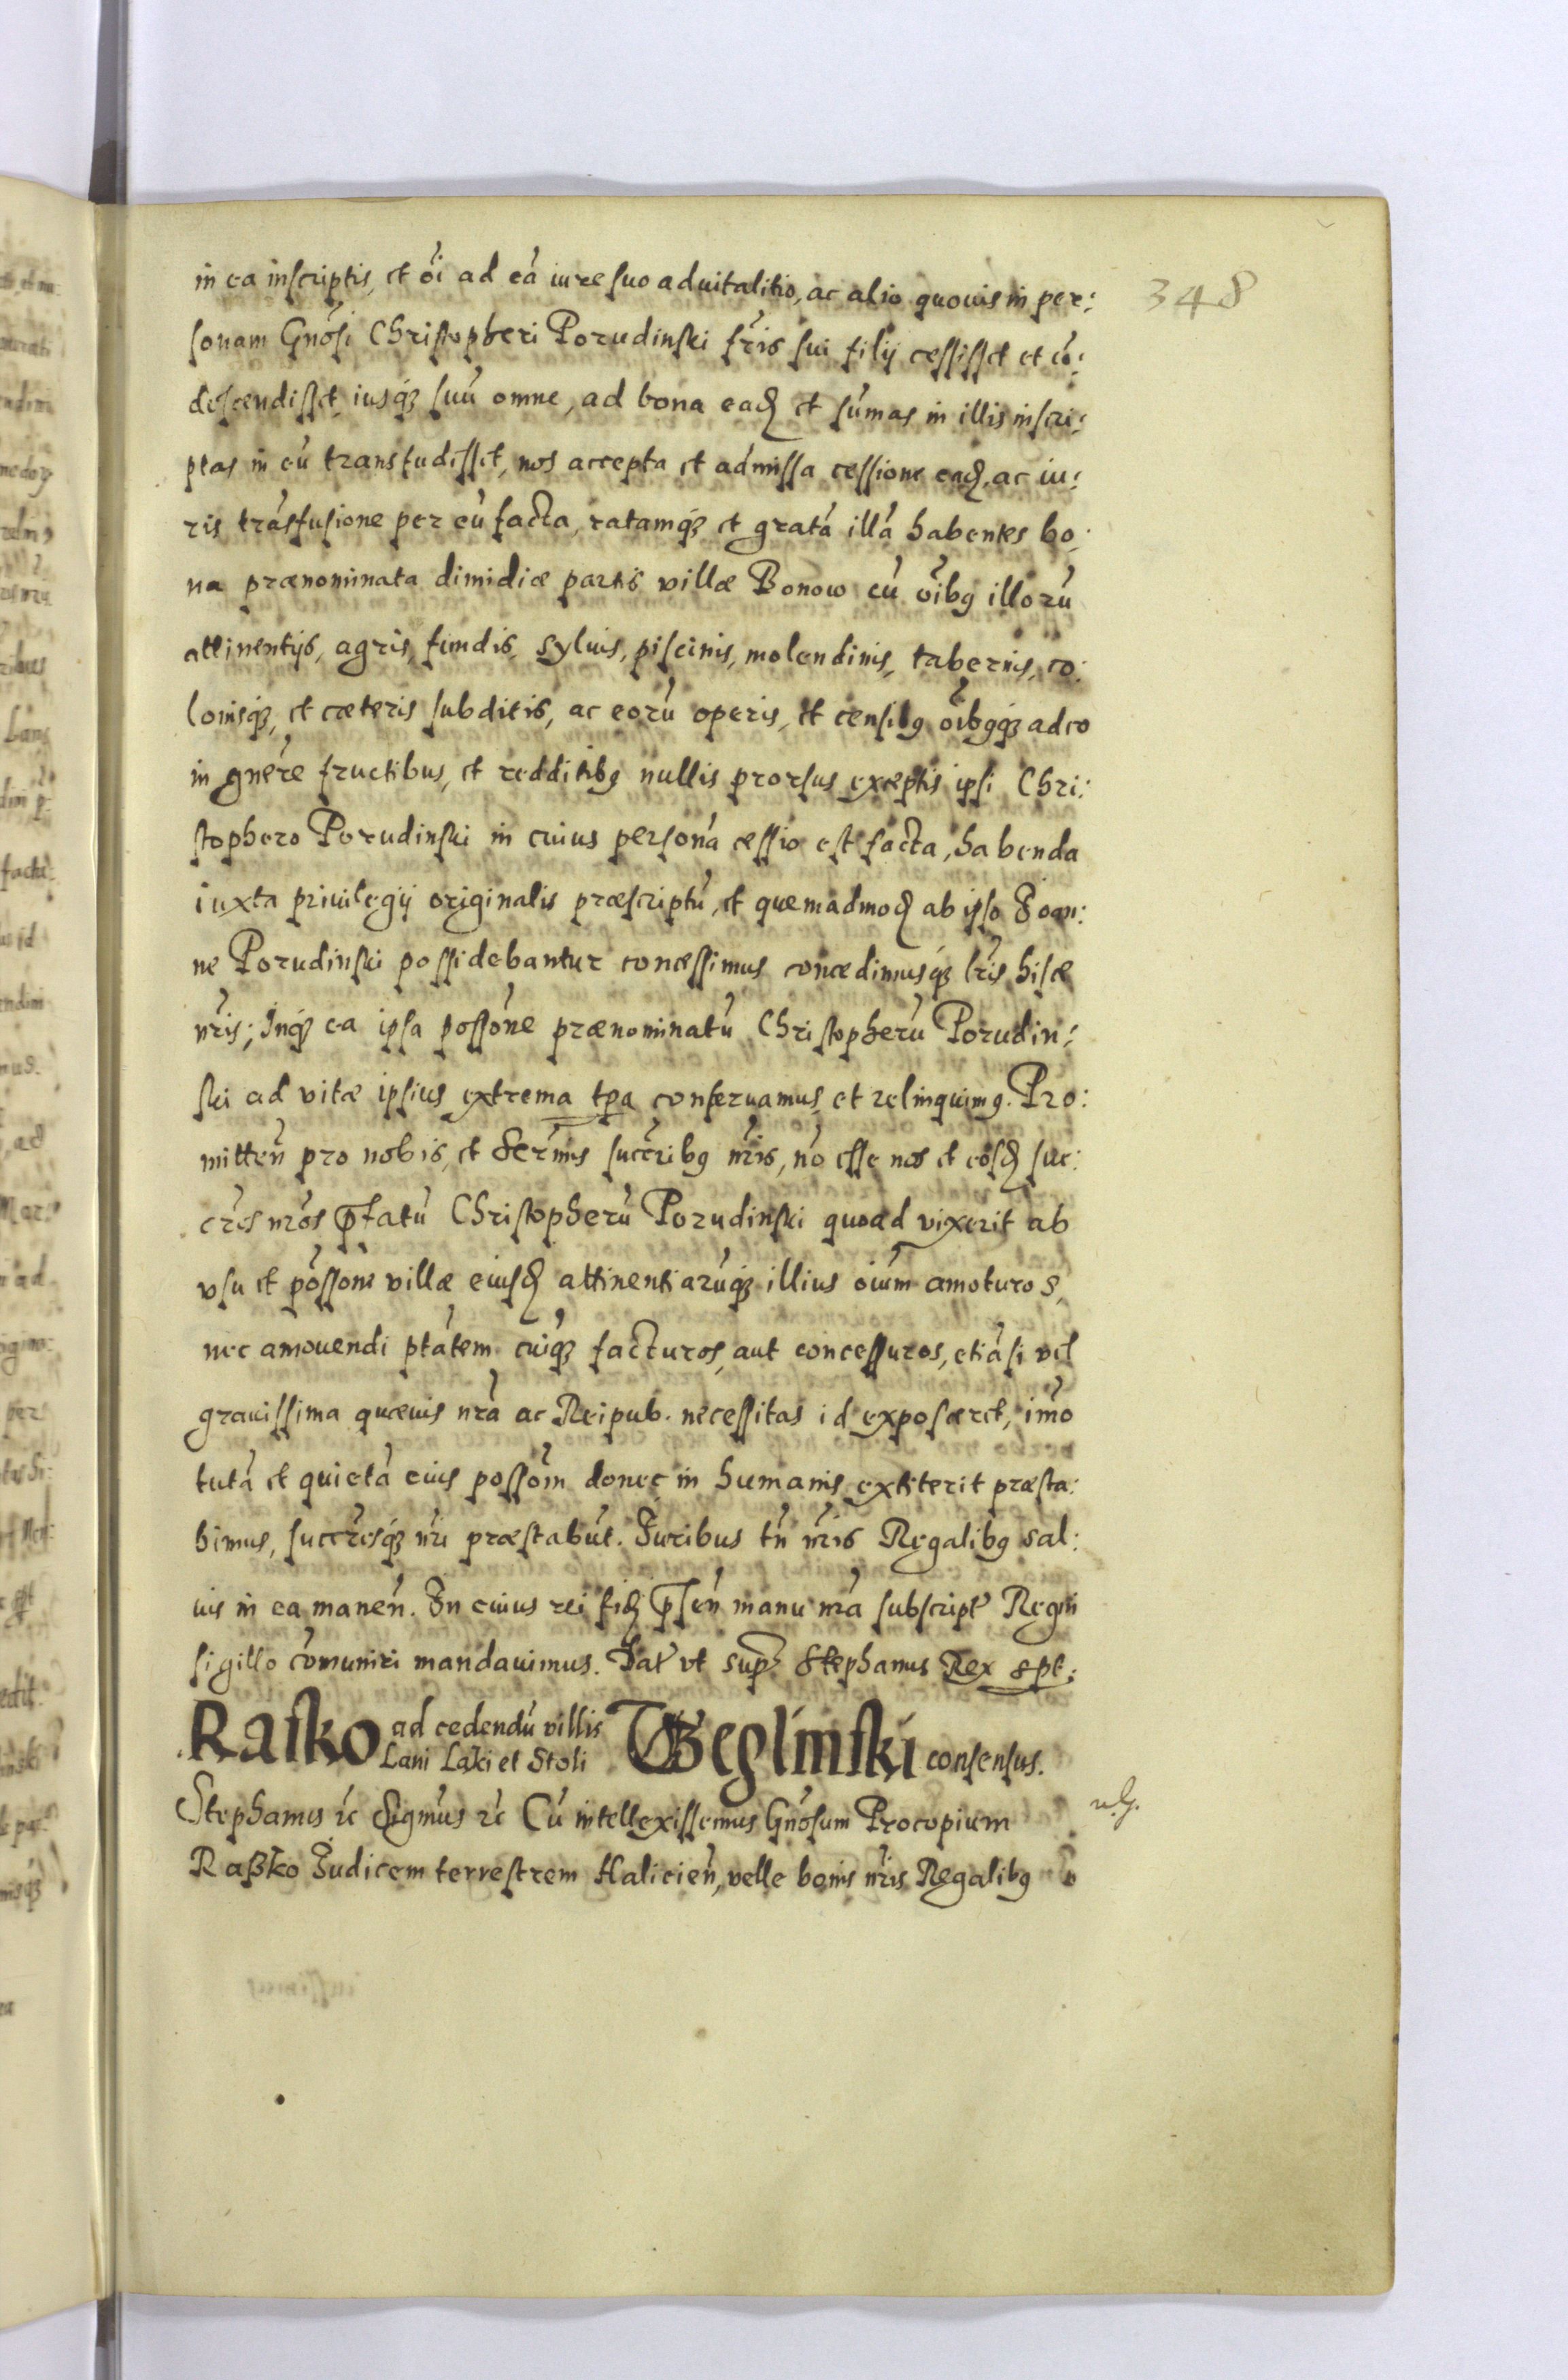 348
in ea inscriptis, et oi ad ea iure suo aduitalitio, ac alio quouis in per:
sonam Gnosi Christopheri Porudinski fris sui filij cessisset et co:
descendisset, iusq3 suu omne, ad bona ead et sumas in illis inscri:
ptas in eu transfudisset, nos accepta et admissa cessione ead, ac iu:
ris trasfusione per eu facta, ratamq3 et grata illa habentes bo:
na prænominata dimidiæ partis villæ Bonow cu oibg illoru
attinentijs, agris, fundis, syluis, piscinis, molendinis, tabernis, co:
lonisq3, et cæteris subditis, ac eoru operis, et censibg oibgq3 adeo
in gnere fructibus, et redditibg nullis prorsus exceptis ipsi Chri:
stophero Porudinski in cuius persona cessio est facta, habenda
iuxta priuilegij originalis præscriptu, et quemadmod ab ipso Joan:
ne Porudinski possidebantur concessimus concedimusq3 lris hisce
nris; Inq3 ea ipsa possone prænominatu Christopheru Porudin:
ski ad vitæ ipsius extrema tpa conseruamus, et relinquimg. Pro:
mitten pro nobis, et Sermis succribg nris, no esse nos et eosd suc:
cres nros pfatu Christopheru Porudinski quoad vixerit ab
vsu et possone villæ eiusd attinentiaruq3 illius oium amoturos,
nec amouendi ptatem cuiq3 facturos, aut concessuros, etiasi vel
grauissima quæuis nra ac Reipub. necessitas id exposceret, imo
tuta et quieta eius possom donec in humanis extiterit præsta:
bimus, succresq3 nri præstabut. Juribus tn nris Regalibg sal:
uis in ea manen. In cuius rei fid psen manu nra subscript Regni
sigillo comuniri mandauimus. Dat vt sup. Stephanus Rex spt:
Rasko ad cedendu villis Lani Laki et Stoli Węglinski consensus.
Stephanus rc Signmus rc Cu intellexissemus Gnosum Procopium
Raßko Judicem terrestrem Halicien, velle bonis nris Regalibg